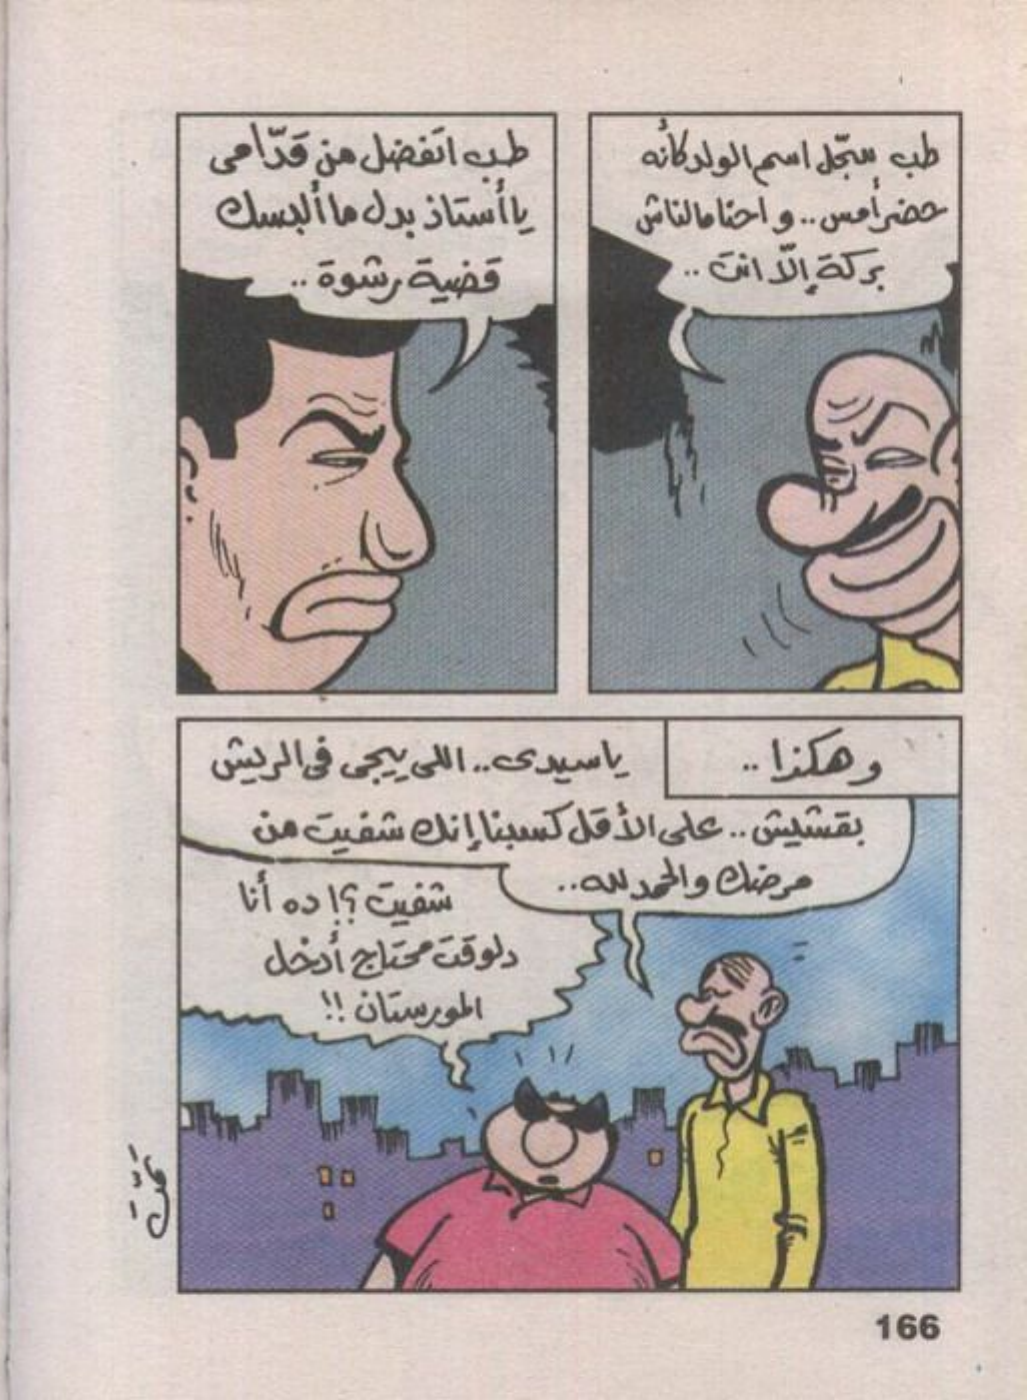 طب سجّل اسم الولد كأنه
حضر أمس.. و احنا مالناش
بركة إلّا انت ..
طب اتفضل من قدّامى
يا أستاذ بدل ما ألبسك
قضية رشوة ..
وهكذا ..
ياسيدى.. اللى ييجى فى الريش
بقشيش .. على الأقل كسبنا إنك شفيت من
مرضك والحمد لله..
شفيت ؟! ده أنا
دلوقت محتاج أدخل
المورستان !!
166